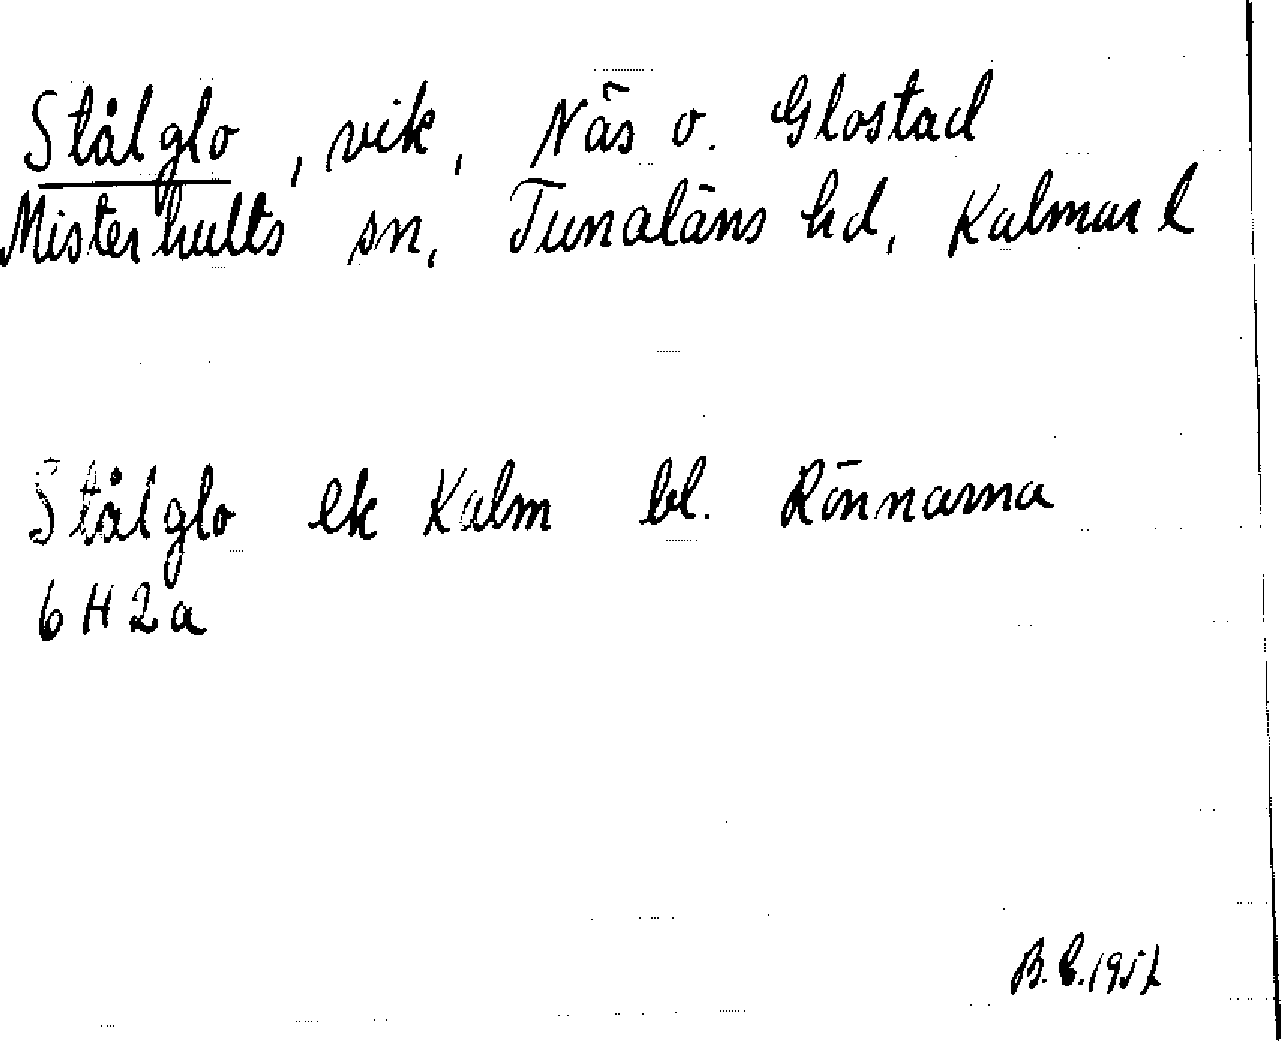 Stålglo, vik, Näs o. Glostad
Misterhults sn, Tunaläns hd, Kalmar l
Stålglo ek Kalm bl. Rönnarna
6H2a
B.E. 1952